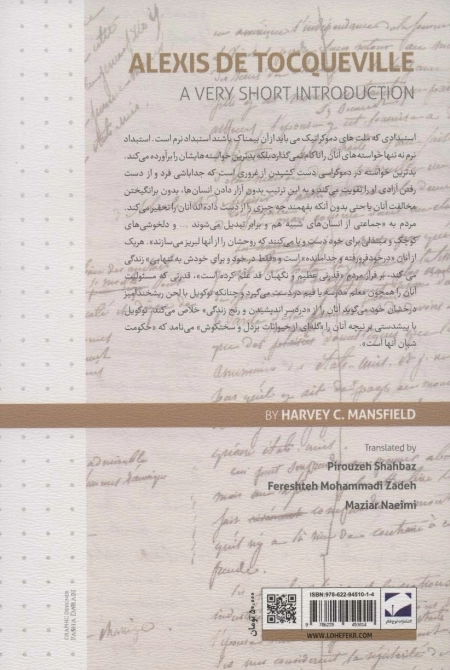 ALEXIS DE TOCQUEVILLE
A VERY SHORT INTRODUCTION
استبدادی که ملت های دموکراتیک می باید از آن بیمناک باشند استبداد نرم است. استبداد
نرم نه تنها خواسته های آنان را ناکام نمی‌گذارد بلکه بدترین خواسته‌هایشان را برآورده می‌کند.
بدترین خواسته در دموکراسی دست کشیدن از غروری است که جداباشی فرد و از دست
رفتن آزادی او را تقویت می‌کند و به این ترتیب بدون آزار دادن انسان‌ها، بدون برانگیختن
مخالفت آنان یا حتی بدون آنکه بفهمند چه چیزی را از دست داده‌اند آنان را تحقیر می‌کند.
مردم به «جماعتی از انسان‌های شبیه هم و برابر تبدیل می‌شوند ... و دلخوشی‌های
کوچک و مبتذلی برای خود دست و پا می‌کنند که روحشان را از آنها لبریز می‌سازند». هریک
از آنان «درخود فرورفته و جدامانده» است و «فقط در خود و برای خودش به تنهایی» زندگی
می کند. بر فراز مردم «قدرتی عظیم و نگهبان قد علم کرده است»، قدرتی که مسئولیت
آنان را همچون معلم مدرسه یا قیم در دست می‌گیرد و چنانکه توکویل با لحن ریشخندآمیز
درخشان خود می‌گوید آنان را از «دردسر اندیشیدن و رنج زندگی» خلاص می‌کند. توکویل
با پیشدستی بر نیچه آنان را «گله‌ای از حیوانات بزدل و سختکوش» می‌نامد که «حکومت
شبان آنها است».
BY HARVEY C. MANSFIELD
Translated by
Pirouzeh Shahbaz
Fereshteh Mohammadi Zadeh
Maziar Naeimi
GRAPHIC DESIGNER
PASHA DARABI
۵۰,۰۰۰ تومان
ISBN: 978-622-94510-1-4
WWW.LOHEFEKR.COM